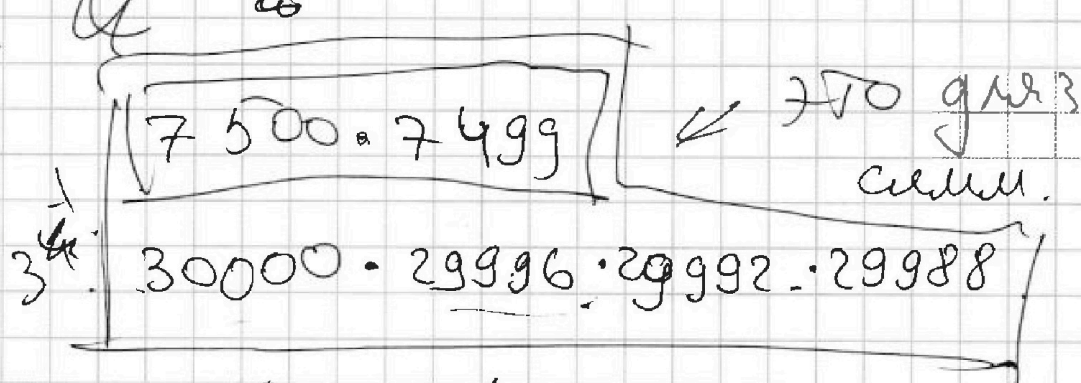 7500 · 7499
это для 3
симм.
30000 · 29996 · 29992 · 29988